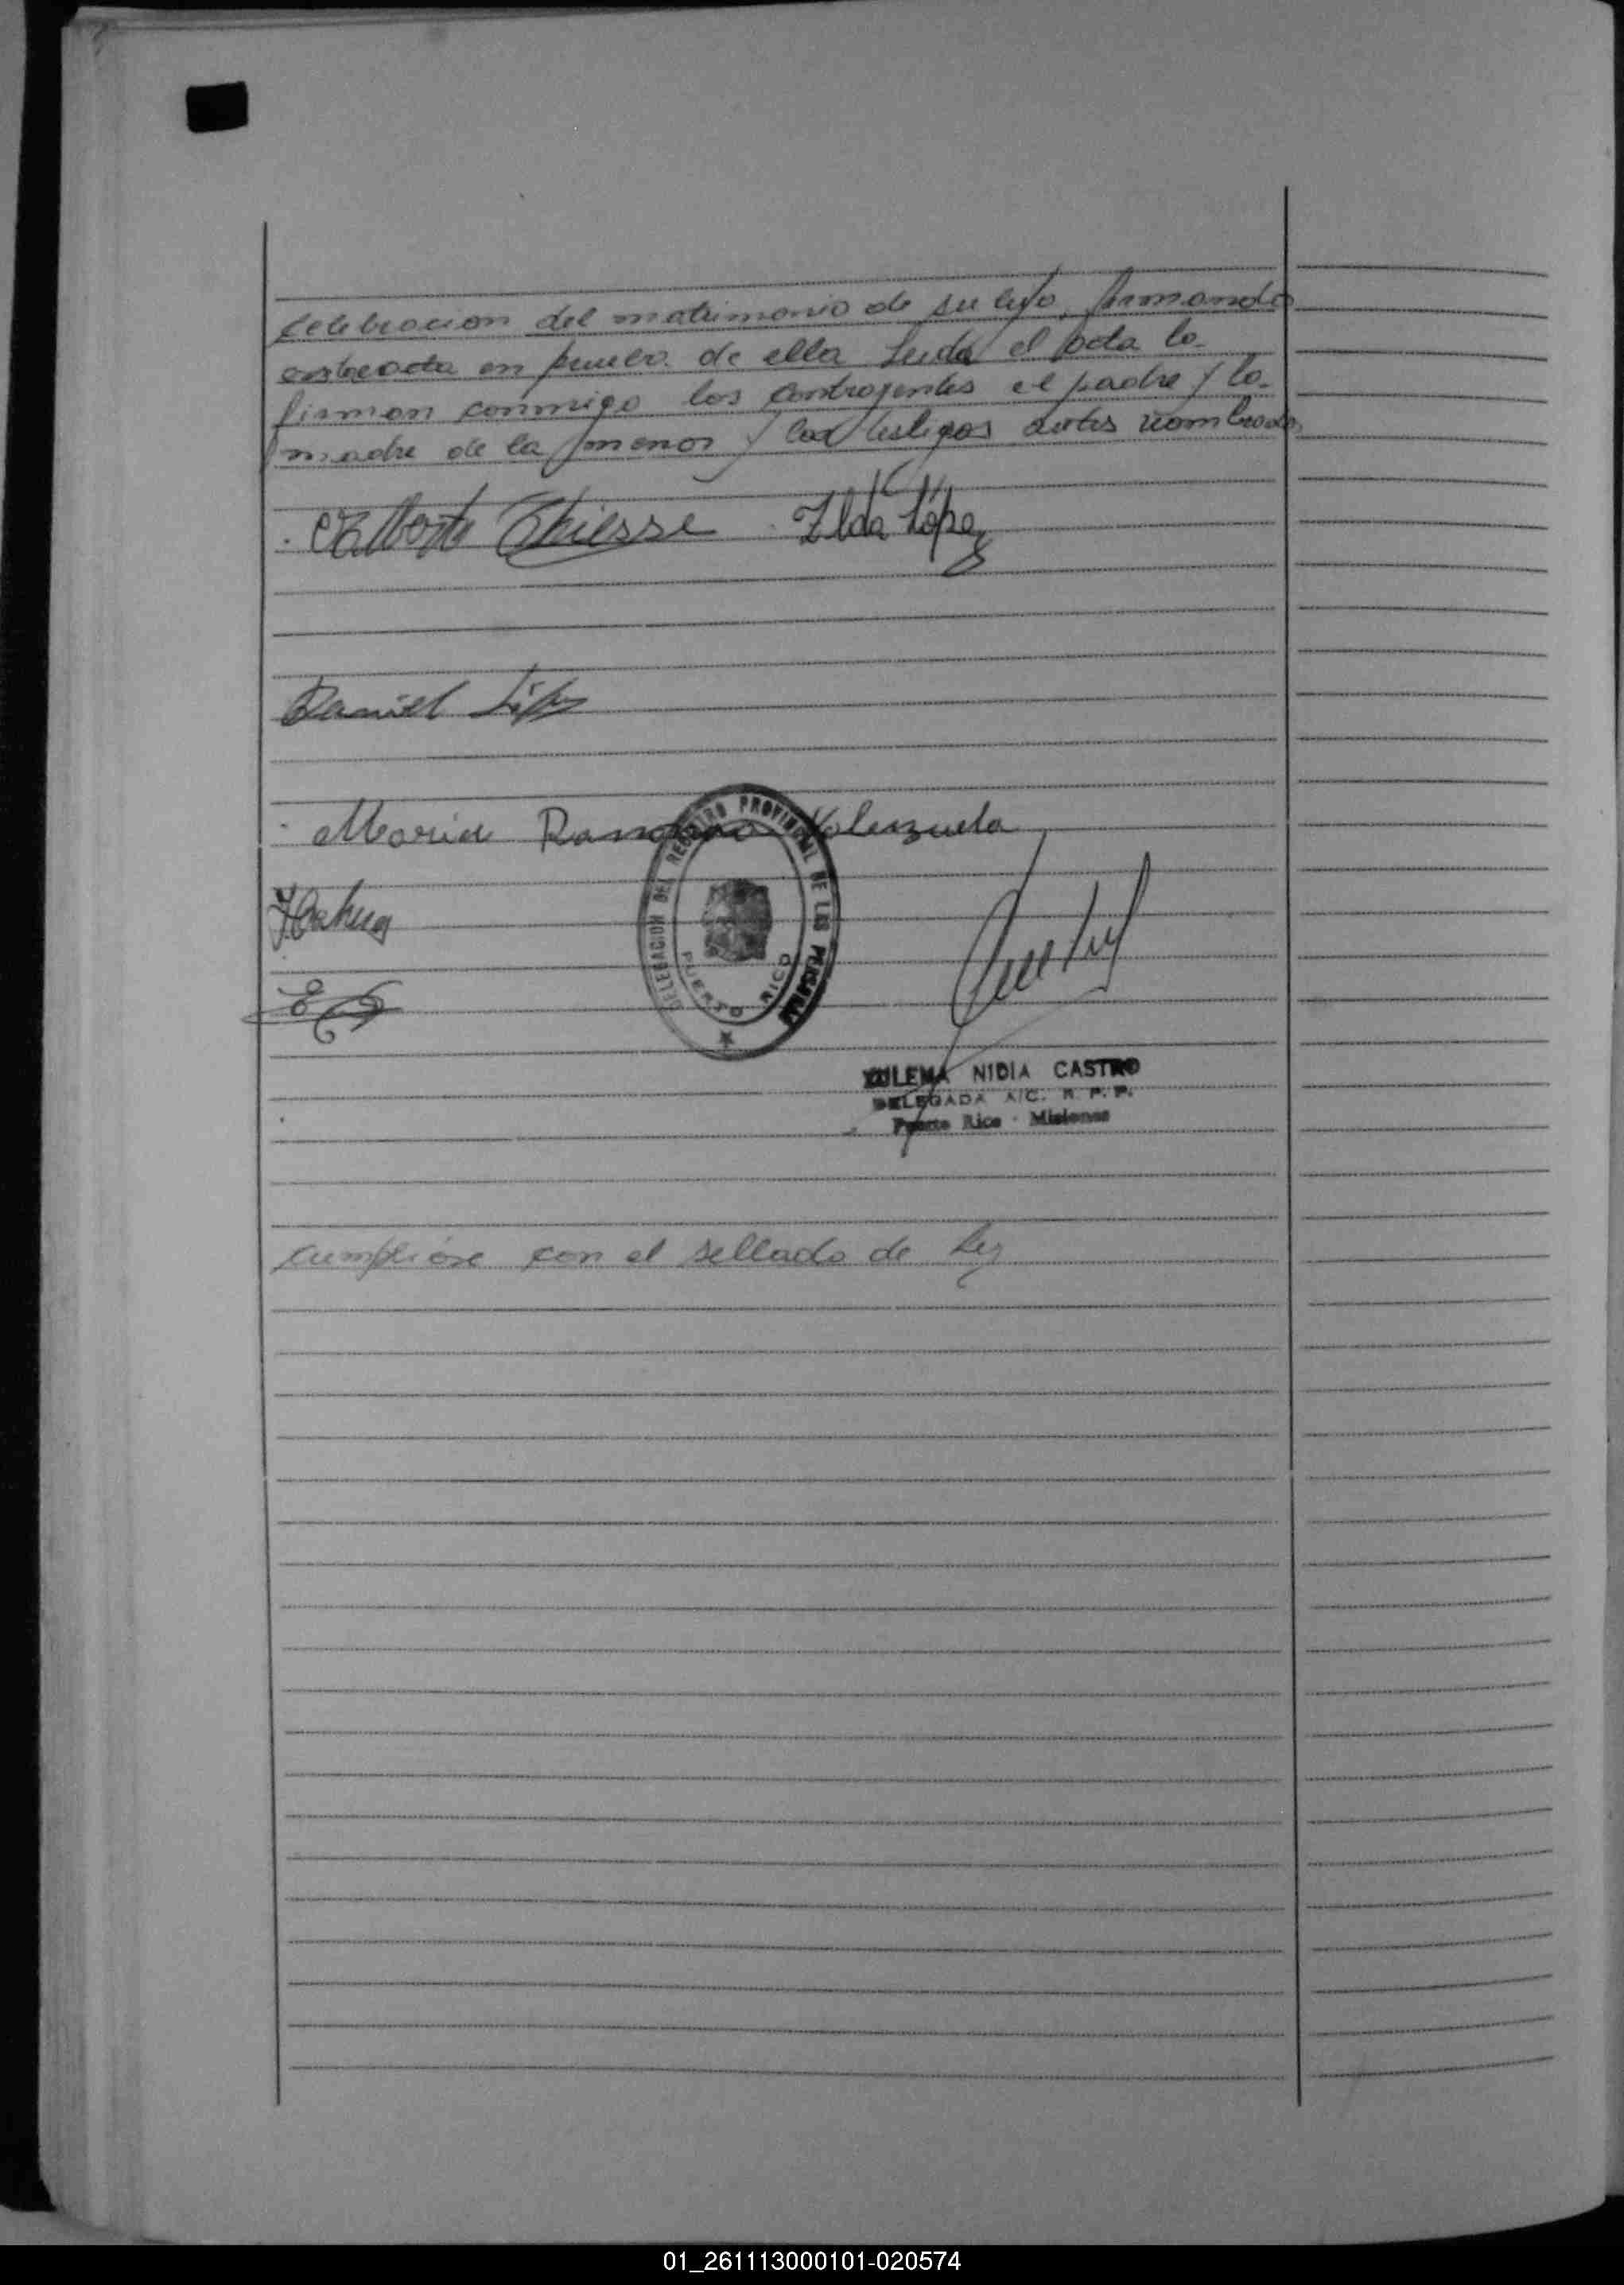 celebracion del matrimonio de su hija, firmando
acta en prueba de ella Leida el acta la
firman conmigo los contrayentes el padre y la
madre de la menor y los testigos antes nombrados
Alberto Chiesse Ilda López
Daniel
Maria Ramona Valenzuela
DELEGACION DEL REGISTRO PROVINCIAL DE LAS PERSONAS
PUERTO RICO
ZULEMA NIDIA CASTRO
DELEGADA A/C. R. P. P.
Puerto Rico - Misiones
cumplióse con el sellado de Ley
01_261113000101-020574